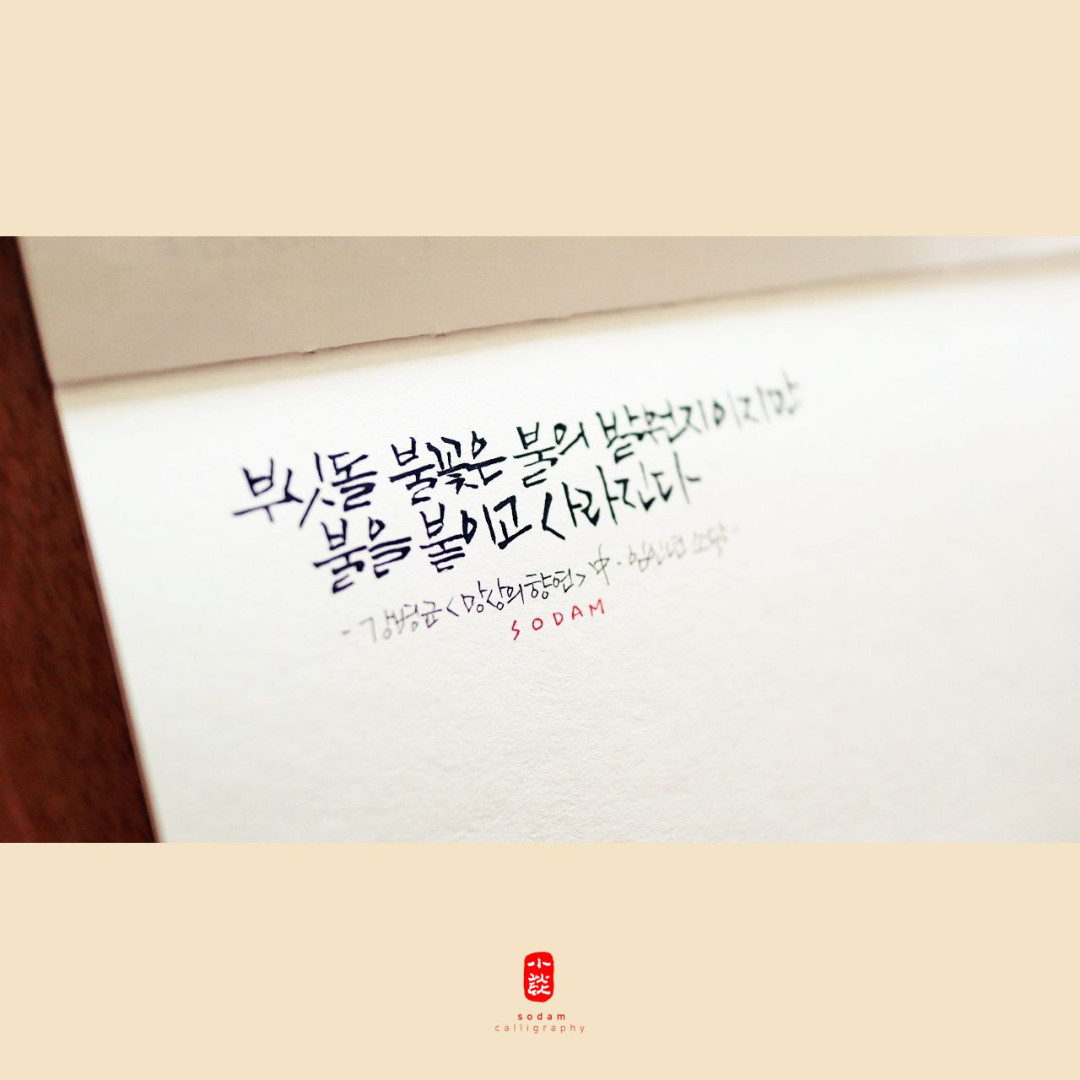 부싯돌 불꽃은 불의 발원지이지만
불을 붙이고 사라진다
- 강병균 <망상의 향연> 中 · 임인년 소담 -
SODAM
小談
sodam
calligraphy